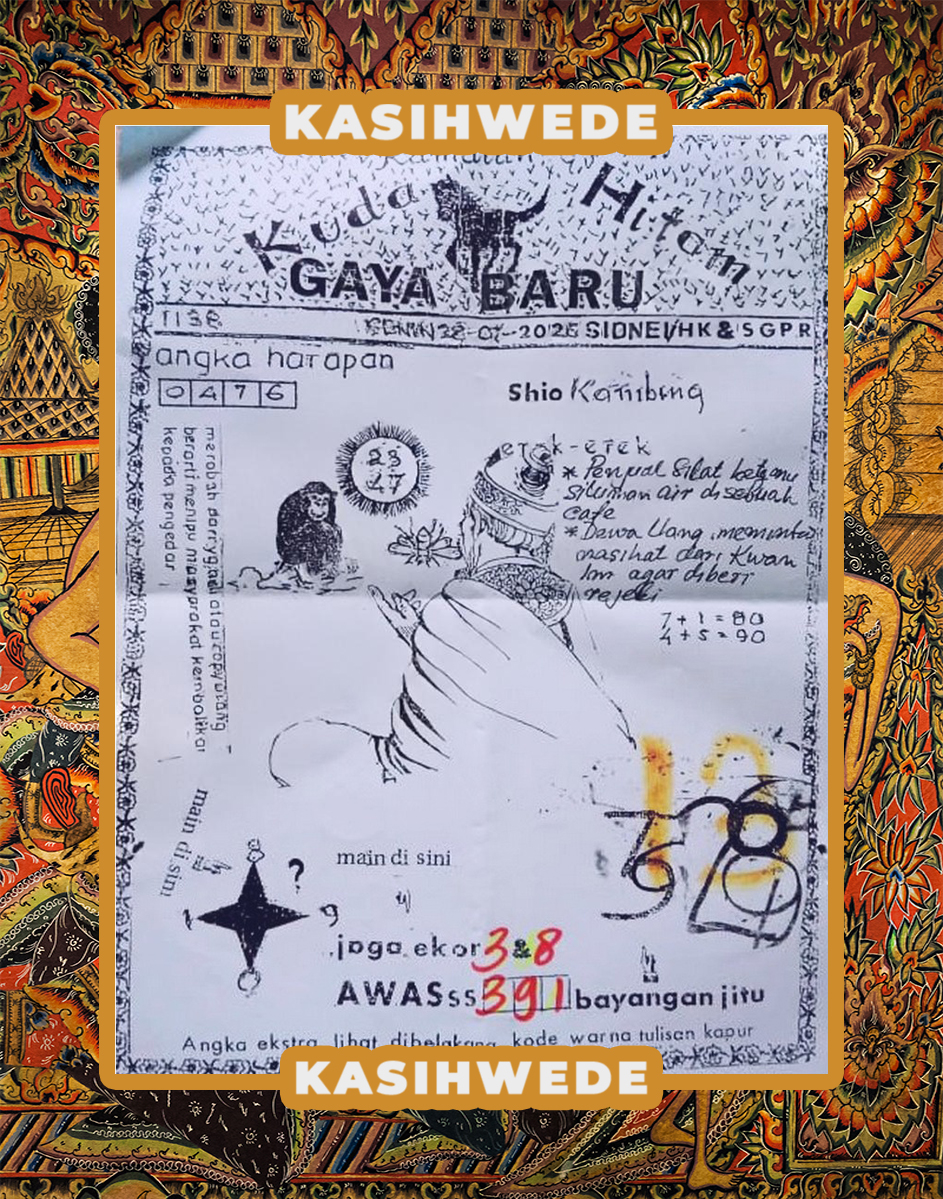 KASIHWEDE
Kuda Hitam
GAYA BARU
SENIN 28-07-2025 SIDNEI/HK & SGPR
angka harapan
0 4 7 6
Shio Kambing
23
47
erek-erek
* Penjual Silat ketemu
siluman air disebuah
cafe
* Dewa Uang meminta
nasihat dari Kwan
Im agar diberi
rejeki
7 + 1 = 80
4 + 5 = 90
merobah parryginal atau copy ulang
berarti menipu masyrakat kembalikan
kepada pengedar
main di sini
?
1 9
main di sini
jaga ekor 3 & 8
AWASss 391 bayangan jitu
Angka ekstra lihat dibelakang kode warna tulisan kapur
KASIHWEDE